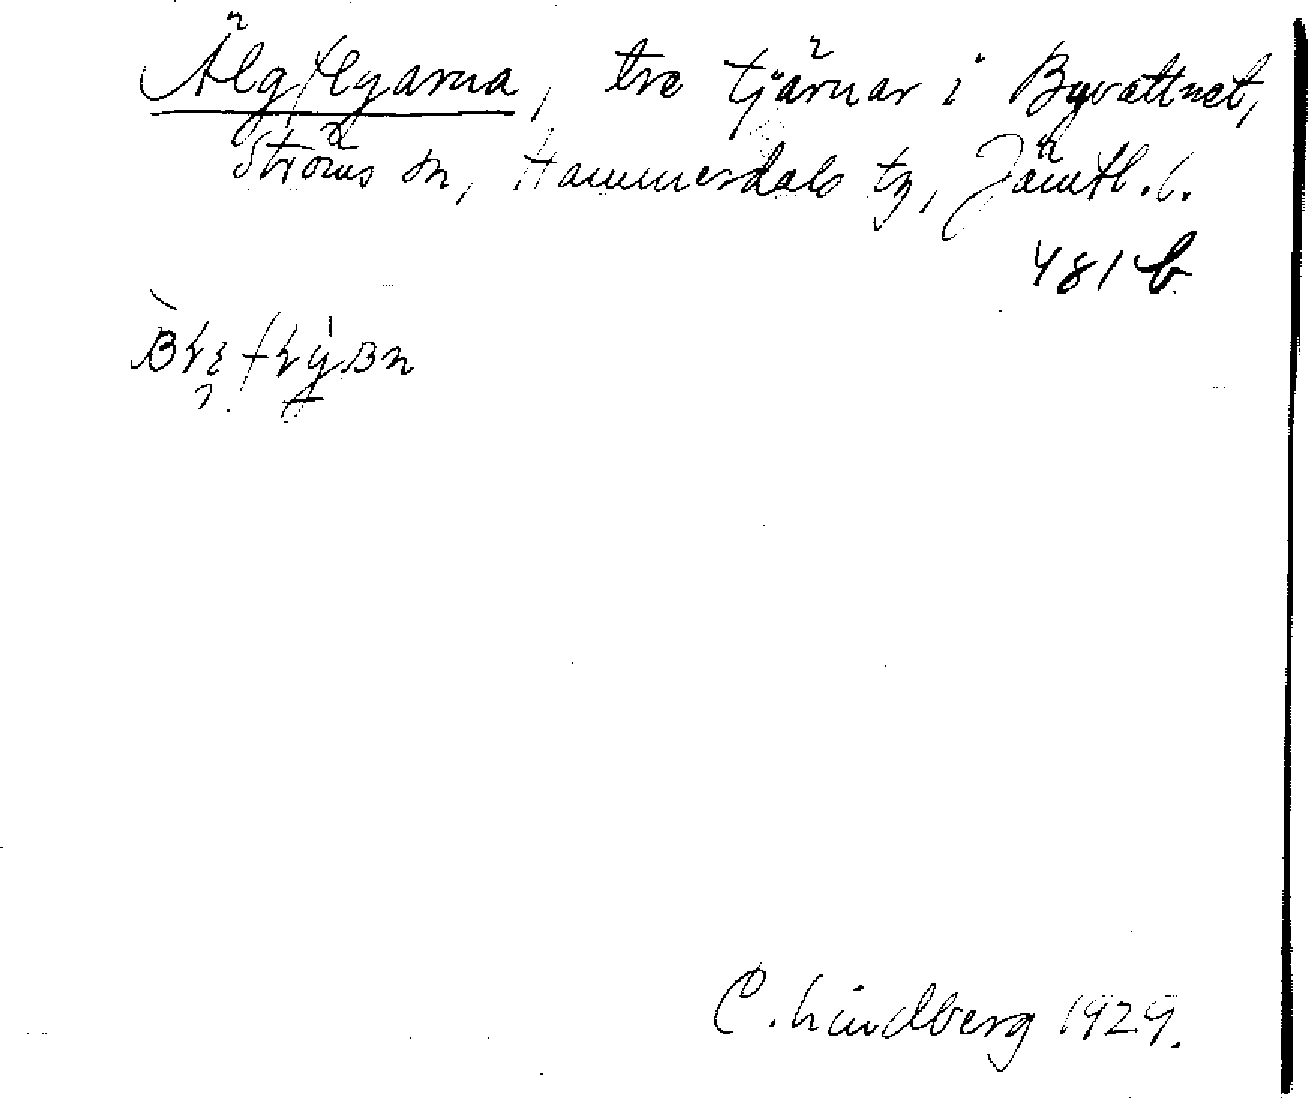 Älgflyarna, tre tjärnar i Byvattnet,
Ströms sn, Hammerdals tg, Jämtl. l.
481 b
C. Lindberg 1929.